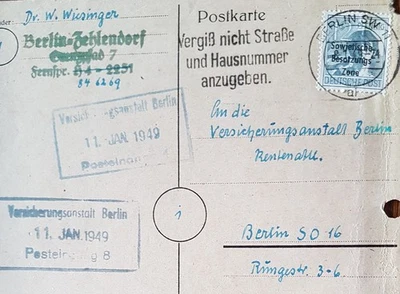 Dr. W. Wiesinger
Berlin-Zehlendorf
7
Fernspr. 84 - 2251
84 62 69
Postkarte
Vergiß nicht Straße
und Hausnummer
anzugeben.
BERLIN SW
Sowjetische
Besatzungs
Zone
DEUTSCHE POST
Versicherungsanstalt Berlin
11. JAN 1949
Posteingang
An die
Versicherungsanstalt Berlin
Rentenabt.
Versicherungsanstalt Berlin
11. JAN. 1949
Posteingang 8
Berlin SO 16
Rungestr. 3-6